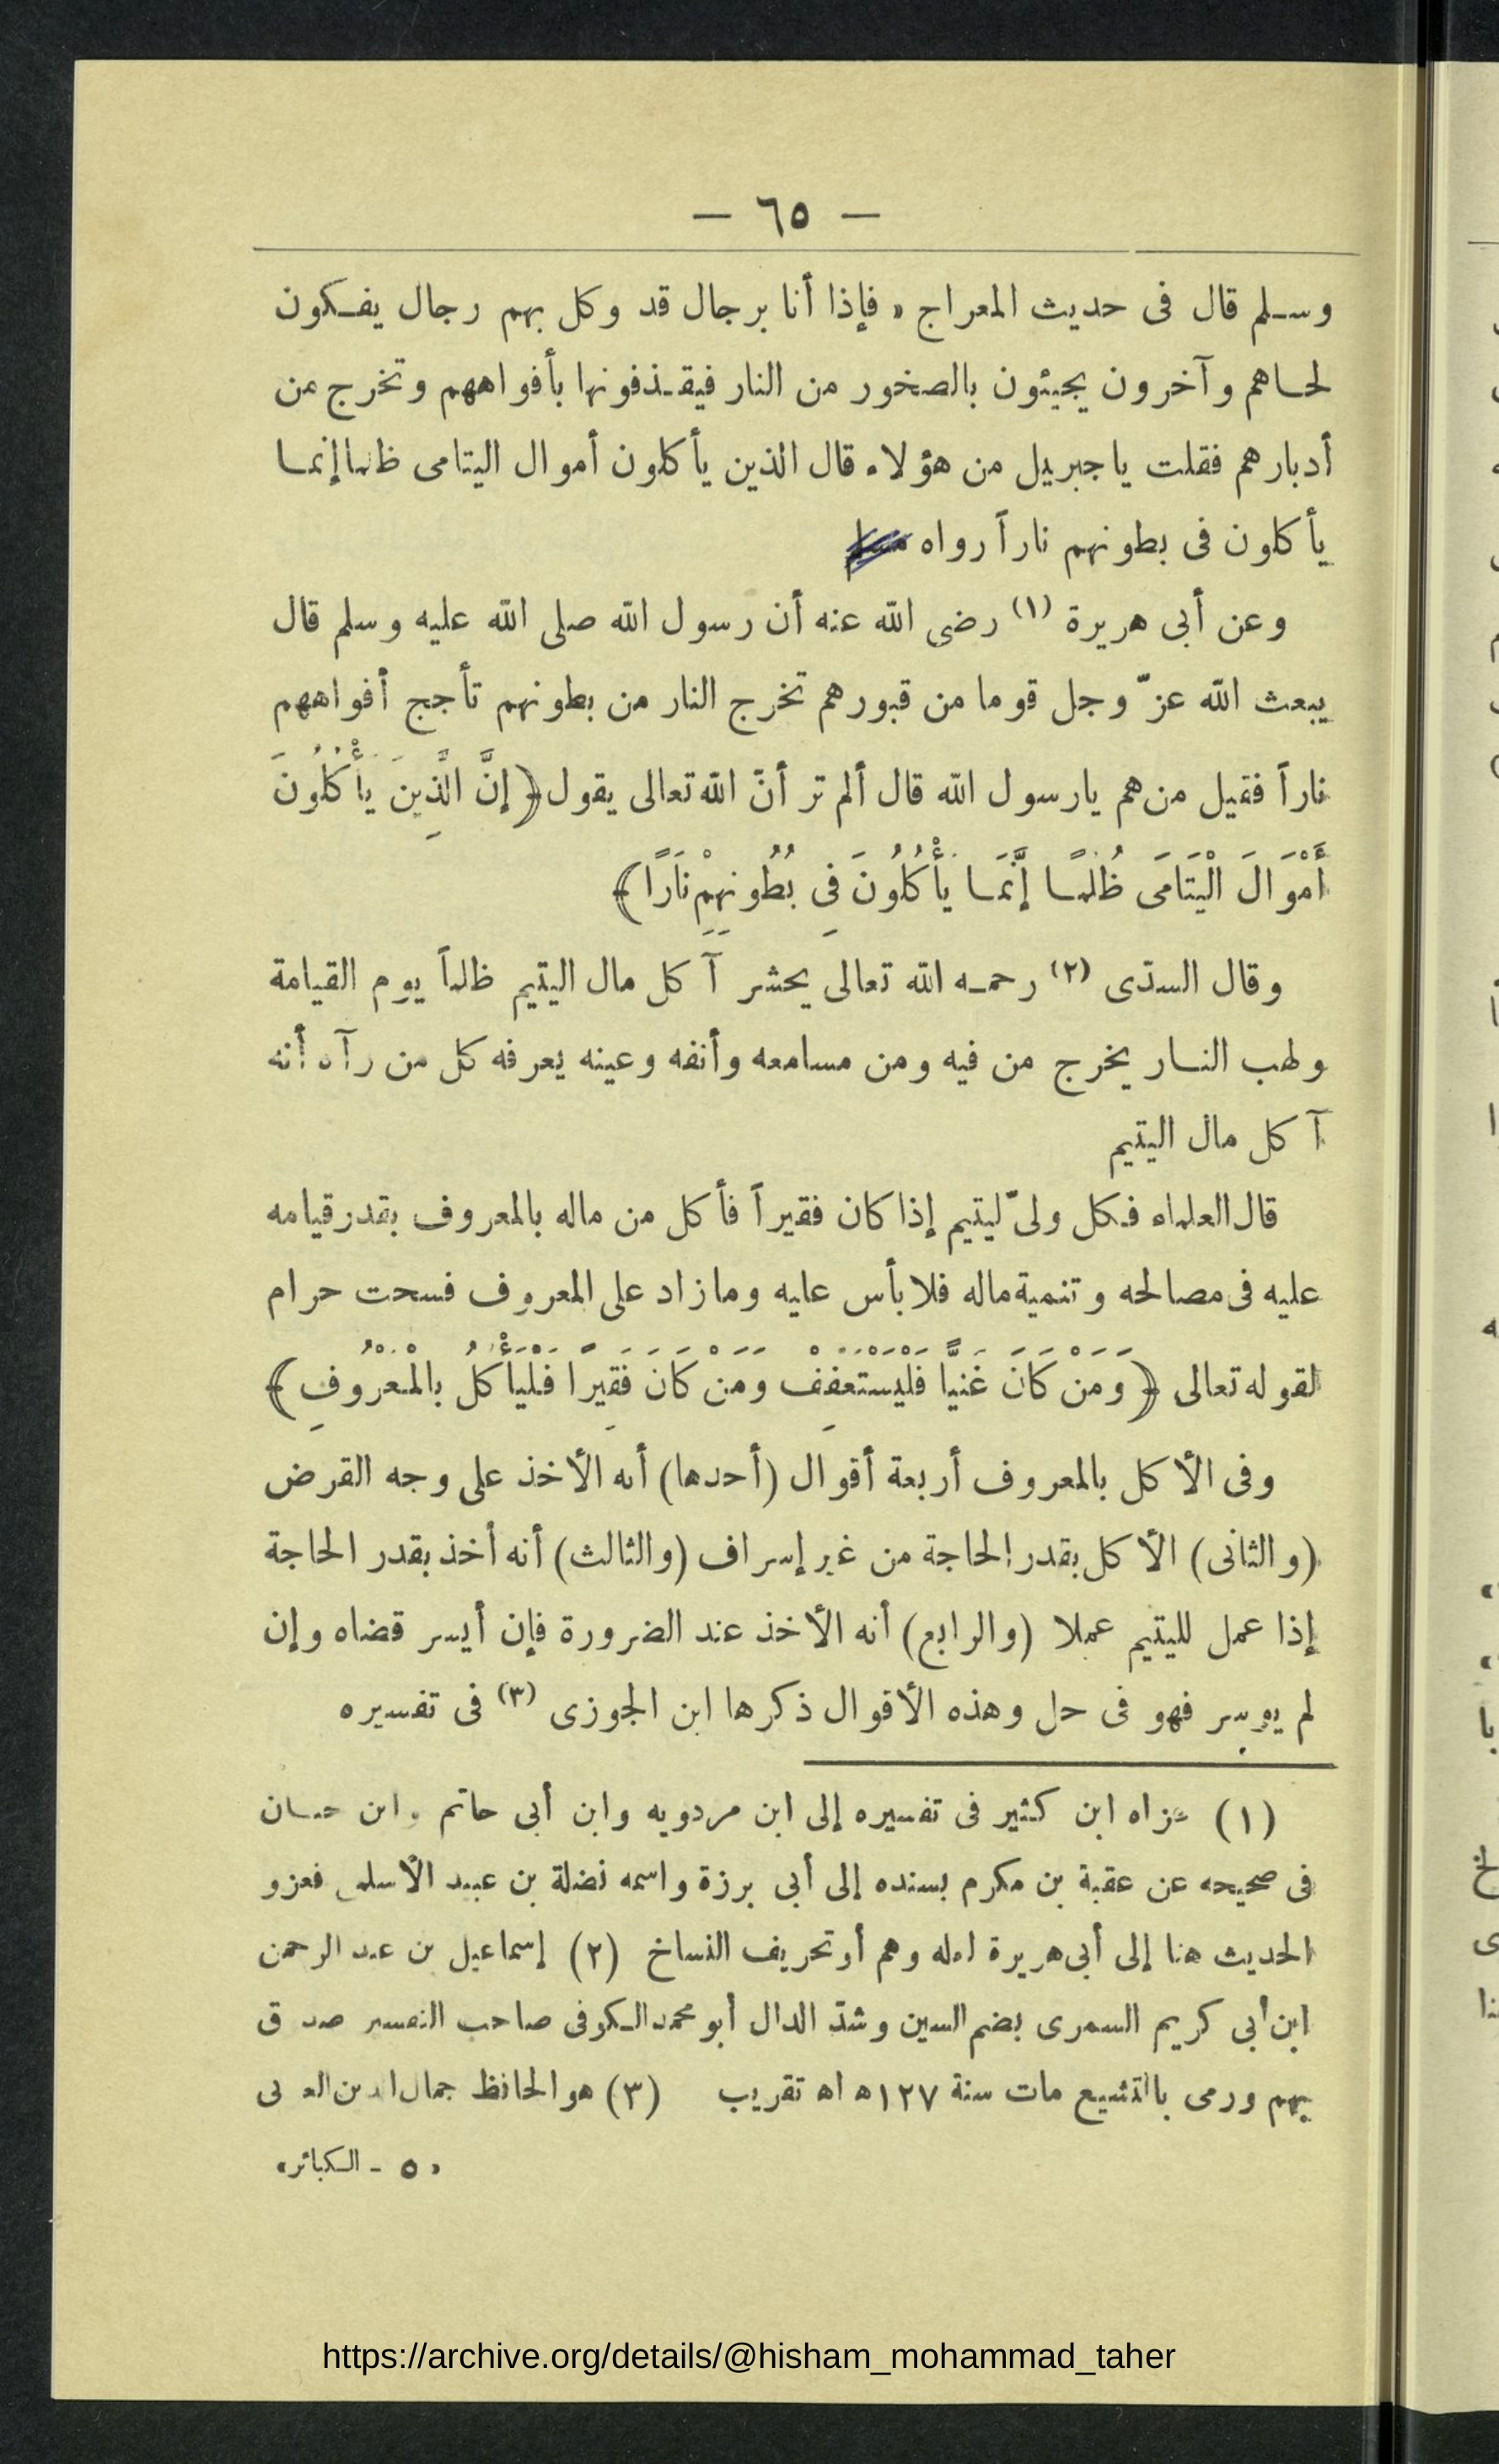 — ٦٥ —
وسلم قال فى حديث المعراج « فإذا أنا برجال قد وكل بهم رجال يفكون
لحاهم وآخرون يجيئون بالصخور من النار فيقذفونها بأفواههم وتخرج من
أدبارهم فقلت ياجبريل من هؤلاء قال الذين يأكلون أموال اليتامى ظلما إنما
يأكلون فى بطونهم ناراً رواه
وعن أبى هريرة (١) رضى الله عنه أن رسول الله صلى الله عليه وسلم قال
يبعث الله عزّ وجل قوما من قبورهم تخرج النار من بطونهم تأجج أفواههم
ناراً فقيل من هم يارسول الله قال ألم تر أنّ الله تعالى يقول ﴿ إِنَّ الَّذِينَ يَأْكُلُونَ
أَمْوَالَ الْيَتَامَى ظُلْمًا إِنَّمَا يَأْكُلُونَ فِى بُطُونِهِمْ نَارًا ﴾
وقال السدّى (٢) رحمه الله تعالى يحشر آكل مال اليتيم ظلماً يوم القيامة
ولهب النار يخرج من فيه ومن مسامعه وأنفه وعينه يعرفه كل من رآه أنه
آكل مال اليتيم
قال العلماء فكل ولىّ ليتيم إذا كان فقيراً فأكل من ماله بالمعروف بقدر قيامه
عليه فى مصالحه وتنمية ماله فلا بأس عليه وما زاد على المعروف فسحت حرام
لقوله تعالى ﴿ وَمَنْ كَانَ غَنِيًّا فَلْيَسْتَعْفِفْ وَمَنْ كَانَ فَقِيرًا فَلْيَأْكُلْ بِالْمَعْرُوفِ ﴾
وفى الأكل بالمعروف أربعة أقوال (أحدها) أنه الأخذ على وجه القرض
(والثانى) الأكل بقدر الحاجة من غير إسراف (والثالث) أنه أخذ بقدر الحاجة
إذا عمل لليتيم عملا (والرابع) أنه الأخذ عند الضرورة فإن أيسر قضاه وإن
لم يوسر فهو فى حل وهذه الأقوال ذكرها ابن الجوزى (٣) فى تفسيره
(١) عزاه ابن كثير فى تفسيره إلى ابن مردويه وابن أبى حاتم وابن حبان
فى صحيحه عن عقبة بن مكرم بسنده إلى أبى برزة واسمه نضلة بن عبيد الأسلمى فعزو
الحديث هنا إلى أبى هريرة لعله وهم أو تحريف النساخ (٢) إسماعيل بن عبد الرحمن
ابن أبى كريم السدى بضم السين وشدّ الدال أبو محمد الكوفى صاحب التفسير صدوق
يهم ورمى بالتشيع مات سنة ١٢٧ه اه تقريب (٣) هو الحافظ جمال الدين
« ٥ - الكبائر»
https://archive.org/details/@hisham_mohammad_taher